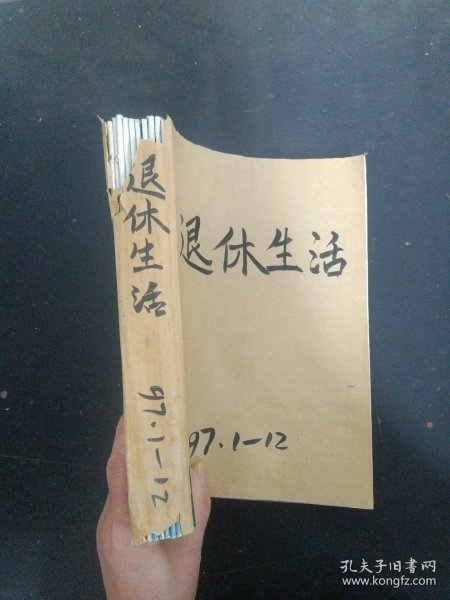 退休生活
97.1—12
退休生活
97.1—12
孔夫子旧书网
www.kongfz.com